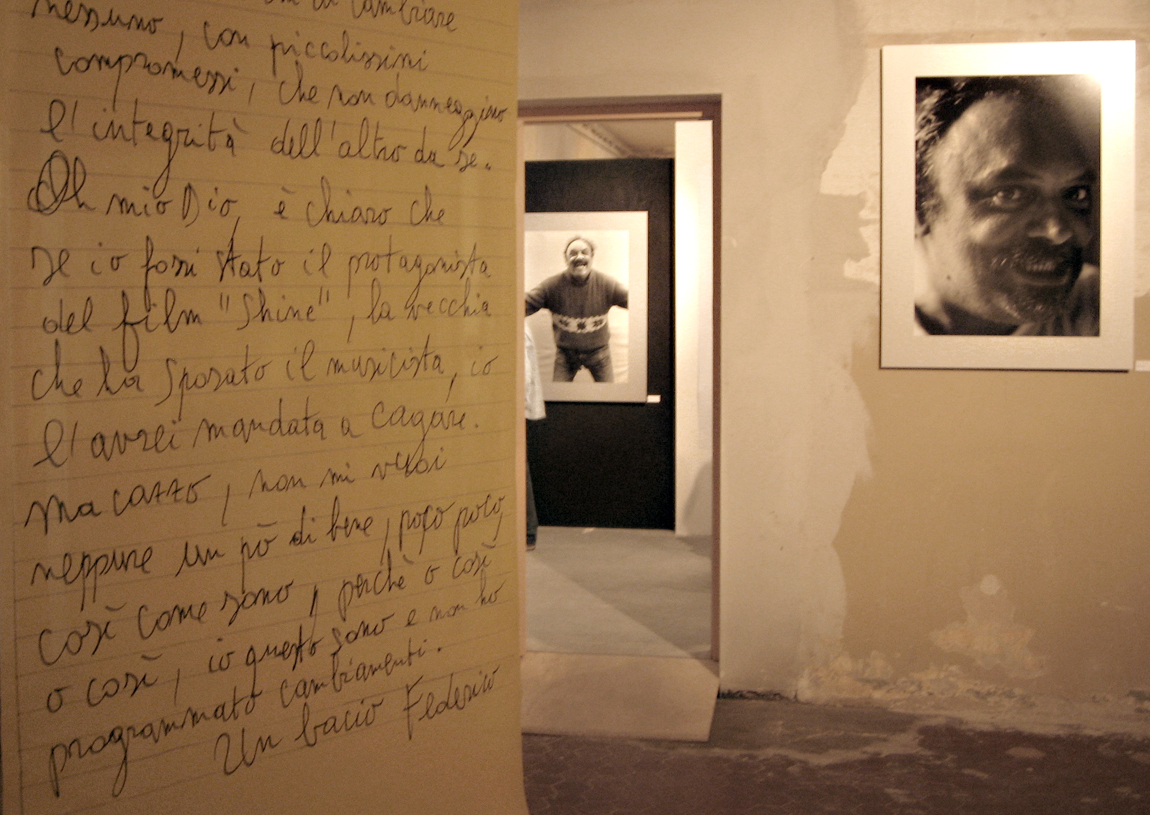 cambiare
nessuno, con piccolissini
compromessi, che non danneggino
l'integrità dell'altro da se.
Oh mio Dio, è chiaro che
se io fossi stato il protagonista
del film "Shine", la vecchia
che ha sposato il musicista, io
l'avrei mandata a cagare.
Ma cazzo, non mi vuoi
neppure un pò di bene, poco poco,
così come sono, perchè o così
o così, io questo sono e non ho
programmato cambiamenti.
Un bacio Federico